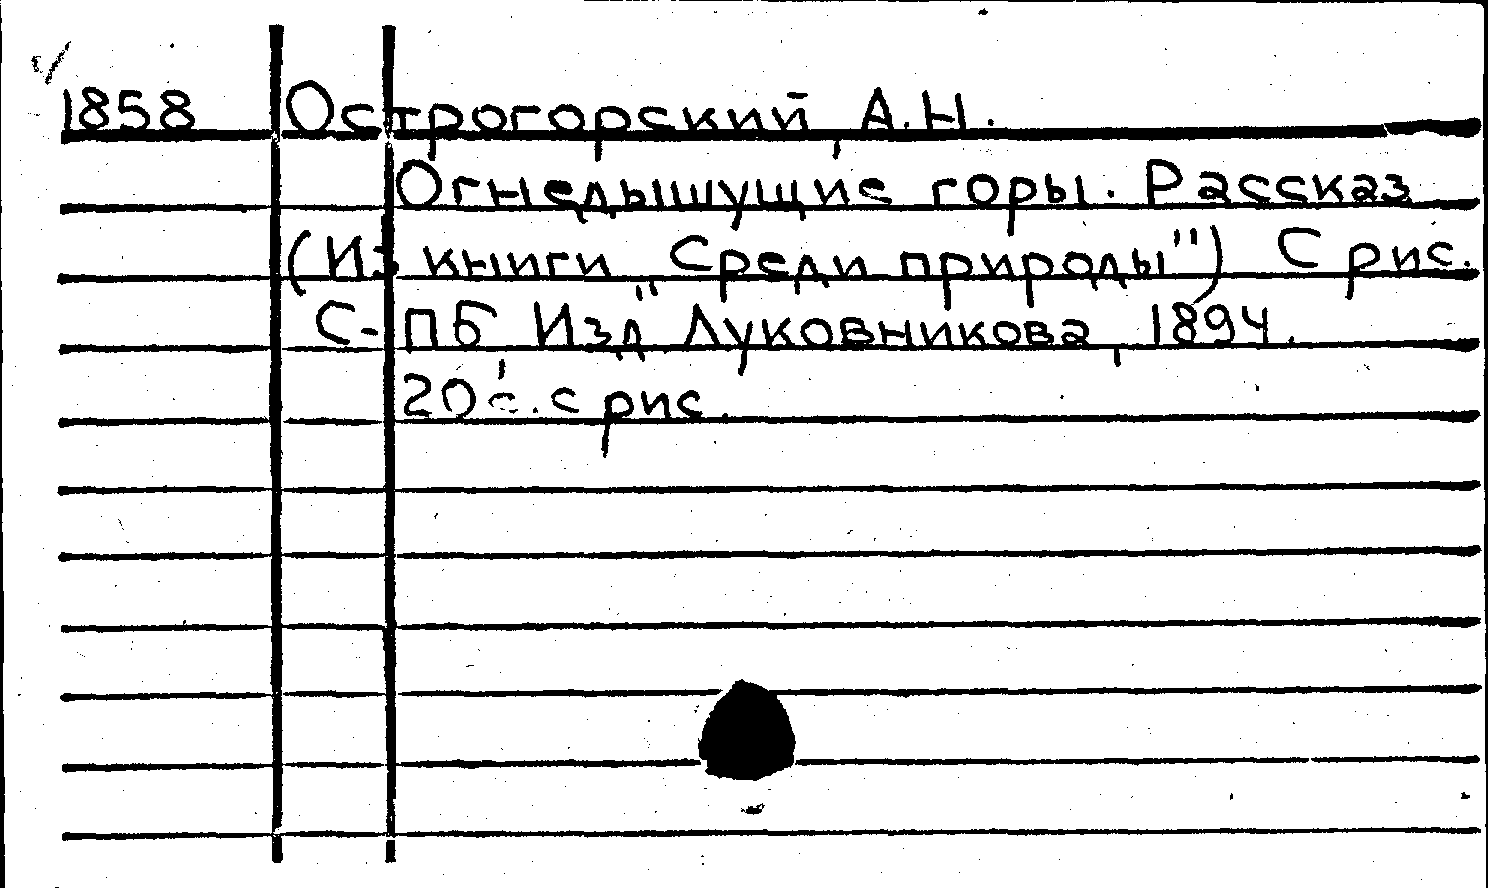 1858 Острогорский А.Н.
Огнедышущие горы. Рассказ
(Из книги „Среди природы") С рис.
С-ПБ Изд Луковникова, 1894.
20 с. с рис.